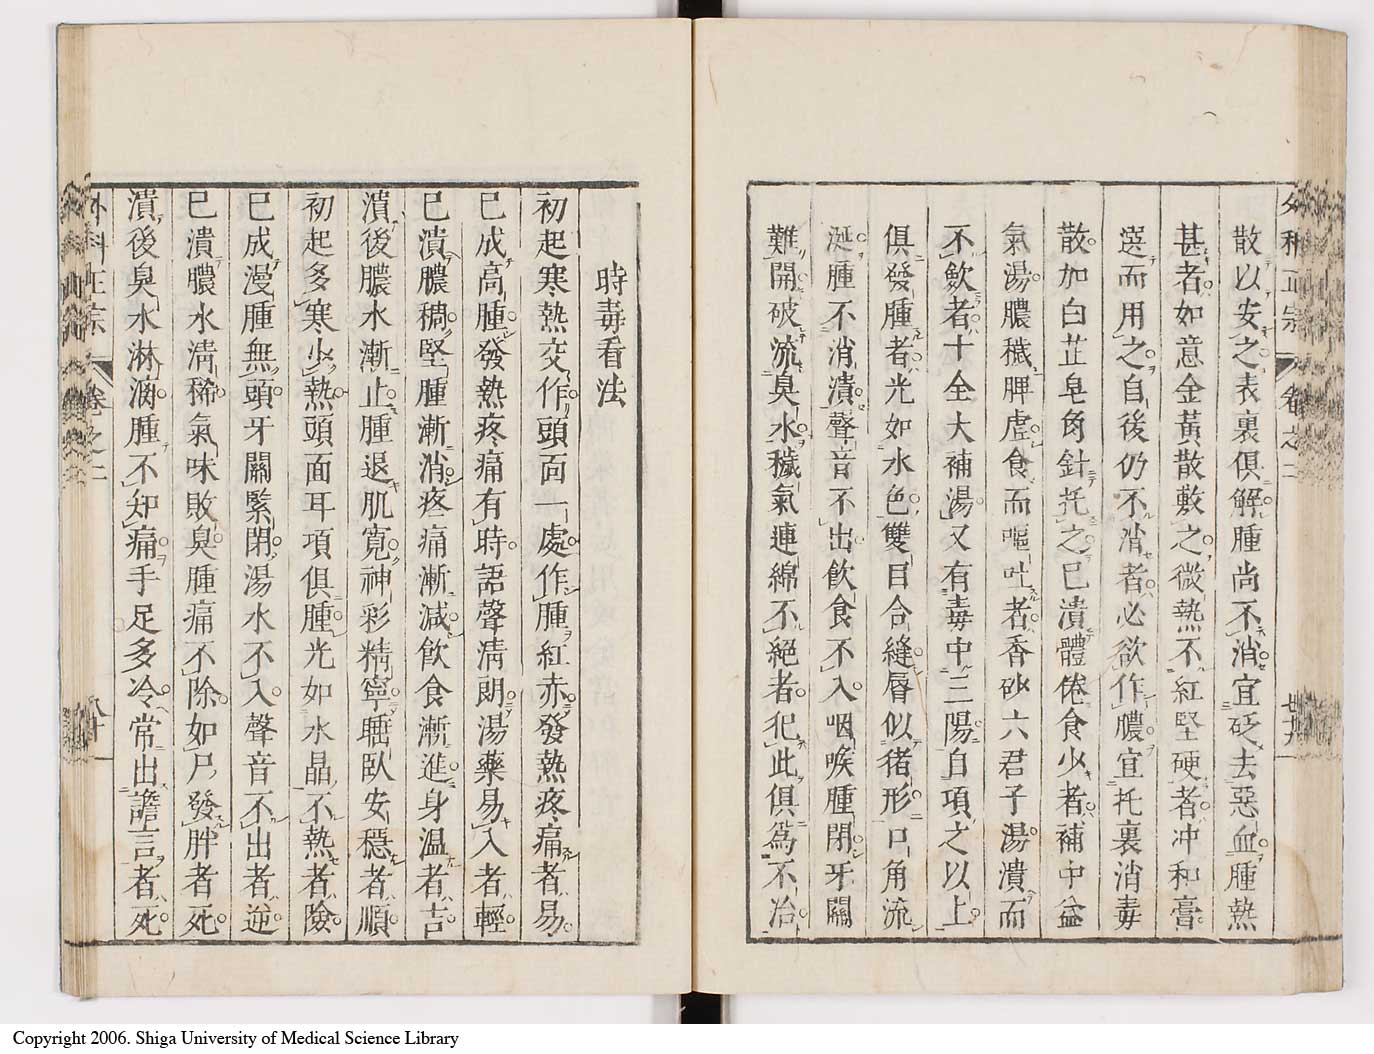 散以安之表裏俱解腫尚不消宜砭去惡血腫熱
甚者如意金黃散敷之微熱不紅堅硬者冲和膏
選而用之自後仍不消者必欲作膿宜托裏消毒
散加白芷皂角針托之已潰體倦食少者補中益
氣湯膿穢脾虛食而嘔吐者香砂六君子湯潰而
不斂者十全大補湯又有毒中三陽自項之以上
俱發腫者光如水色雙目合縫唇似猪形口角流
涎腫不消潰聲音不出飲食不入咽喉腫閉牙關
難開破流臭水穢氣連綿不絕者犯此俱為不治
時毒看法
初起寒熱交作頭面一處作腫紅赤發熱疼痛者易
已成高腫發熱疼痛有時語聲清朗湯藥易入者輕
已潰膿稠堅腫漸消疼痛漸減飲食漸進身温者吉
潰後膿水漸止腫退肌寬神彩精寧睡臥安穩者順
初起多寒少熱頭面耳項俱腫光如水晶不熱者險
已成漫腫無頭牙關緊閉湯水不入聲音不出者逆
已潰膿水清稀氣味敗臭腫痛不除如尸發胖者死
潰後臭水淋漓腫不知痛手足多冷常出譫言者死
外科正宗
卷之二
Copyright 2006. Shiga University of Medical Science Library